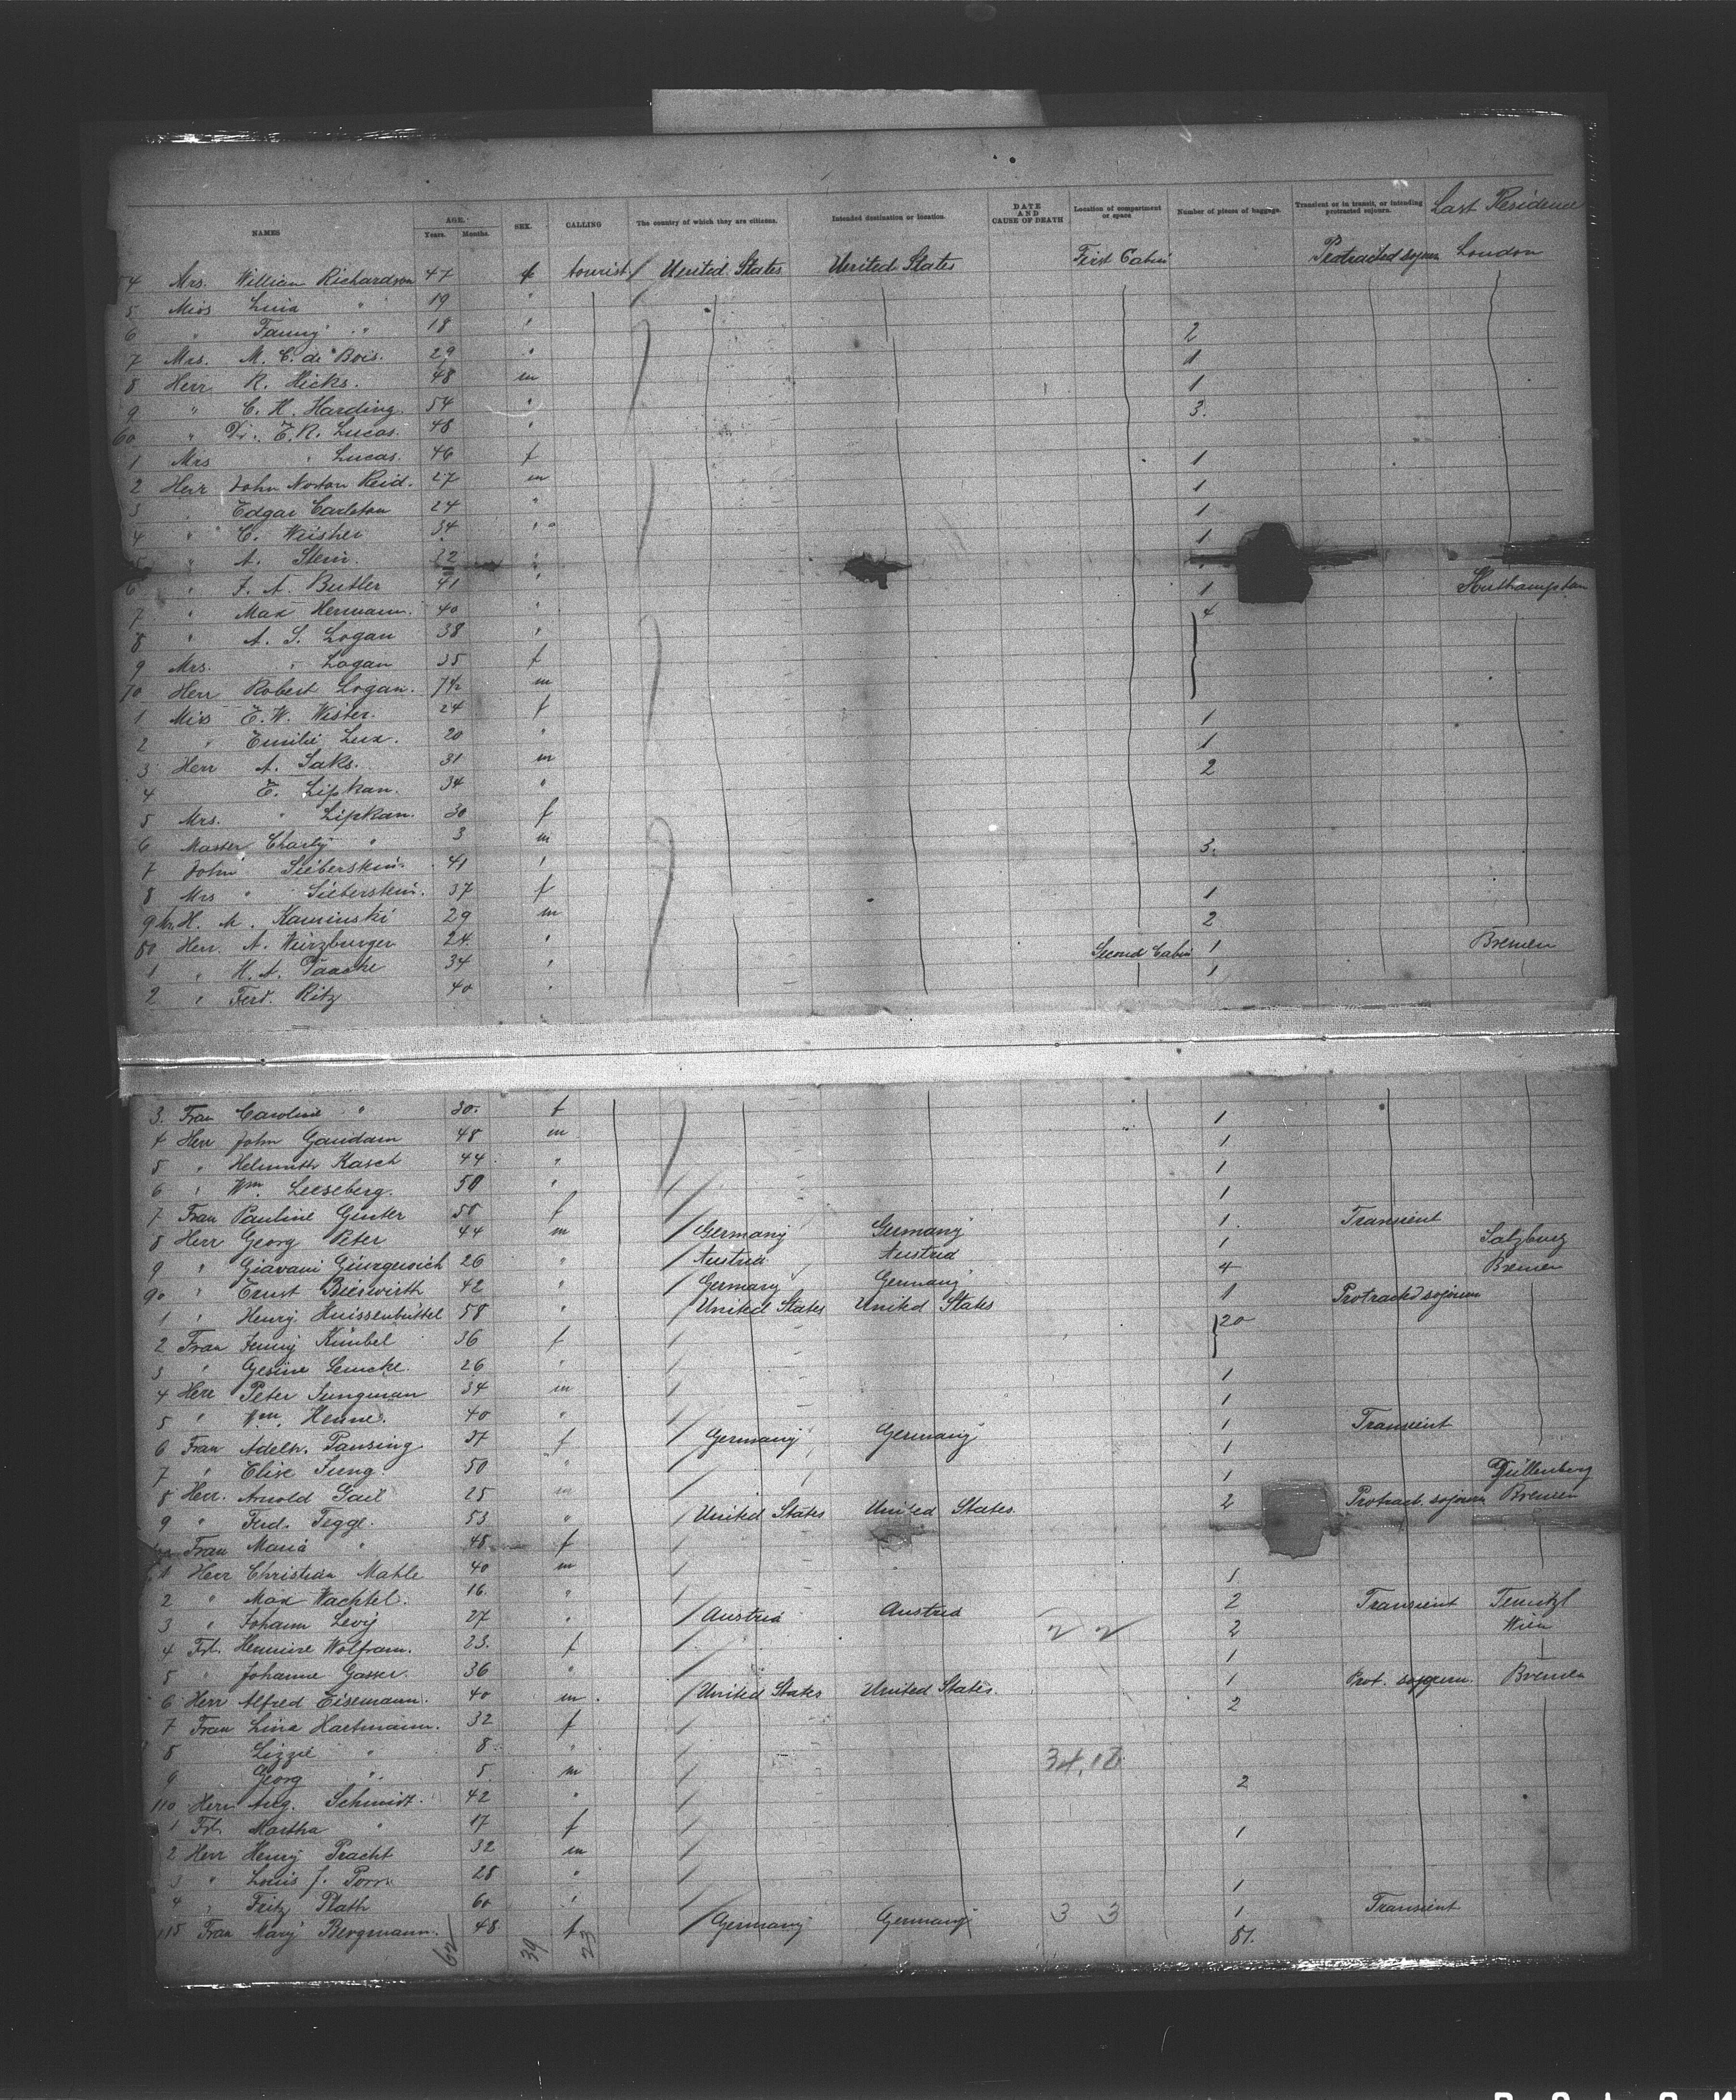 NAMES AGE. Years. Months. SEX. CALLING The country of which they are citizens. Intended destination or location. DATE AND CAUSE OF DEATH Location of compartment or space Number of pieces of baggage. Transient or in transit, or intending protracted sojourn. Last Residence
54 Mrs. William Richardson 47 f tourist / United States United States First Cabin Protracted sojourn London
5 Miss Lina " 19 "
6 " Fanny " 18 " 2
7 Mrs. M. C. de Bois. 29 " 1
8 Herr R. Hicks. 48 m 1
9 " C. H. Harding. 54 " 3.
60 " Dr. E. R. Lucas. 48 "
1 Mrs " Lucas. 46 f 1
2 Herr John Norton Reid. 27 m 1
3 " Edgar Carleton 24 " 1
4 " C. Weisher 34 " 1
" A. Stein. 32 "
6 " F. A. Butler 41 " 1 Southampton
7 " Max Hermann. 40 " 4
8 " A. S. Logan 38 "
9 Mrs. " Logan 35 f
70 Herr Robert Logan. 7½ m
1 Miss E. W. Wister. 24 f 1
2 " Emilie Lux. 20 " 1
3 Herr A. Saks. 31 m 2
4 E. Lipkan. 34 "
5 Mrs. " Lipkan. 30 f
6 Master Charly " 3 m 3.
7 John Sieberstein. 41 "
8 Mrs " Sieberstein. 37 f 1
9 H. M. Kaminski 29 m 2
80 Herr. A. Würzburger 24. " Second Cabin 1 Bremen
1 " H. A. Taaske 34 " 1
2 " Ferd. Ritz 40 "
3. Frau Caroline " 30. f 1
4 Herr John Gaudam 48 m 1
5 " Helmuth Kasch 44 " 1
6 " Wm. Leeseberg. 50 " 1
7 Frau Pauline Genter 58 f / Germany Germany 1. Transient
8 Herr Georg Peter 44 m / Austria Austria 1 Salzburg
9 " Giavani Giurgewich 26 " / Germany Germany 4 Bremen
90 " Ernst Bierwirth 42 " / United States United States 1 Protractd sojourn
1 " Henry Huissenbüttel 58 " 20
2 Frau Jenny Kimbel 36 f
3 " Gesine Lemcke. 26 " 1
4 Herr Peter Jungman 34 m 1
5 " Wm. Henne. 40 " 1 Transient
6 Frau Adelh. Pansing 37 f / Germany Germany 1
7 " Elise Jung. 50 " 1 Dillenberg
8 Herr. Arnold Gail 25 m / United States United States. 2 Protract. sojourn Bremen
9 " Ferd. Teggl. 53 "
Frau Maria " 48 f
1 Herr Christian Mahle 40 m 1
2 " Max Wachtel. 16. " 2 Transient
3 " Johann Levy 27 " / Austria Austria 2 Wien
4 Frl. Hermine Wolfram. 23. f 1
5 " Johanne Gasser. 36 " 1 Prot. sojourn. Bremen
6 Herr Alfred Eisemann. 40 m. / United States United States. 2
7 Frau Lina Hartmann. 32 f
8 Lizzie " 8. "
9 Georg " 5. m 2
110 Herr Aug. Schmidt. 42 "
1 Frl. Martha " 17 f 1
2 Herr Henry Pracht 32 m
3 " Louis J. 28 " 1
4 " Fritz Plath 60 " 1 Transient
115 Frau Mary Bergmann. 48 f / Germany Germany 3 3 81.
62 39 23